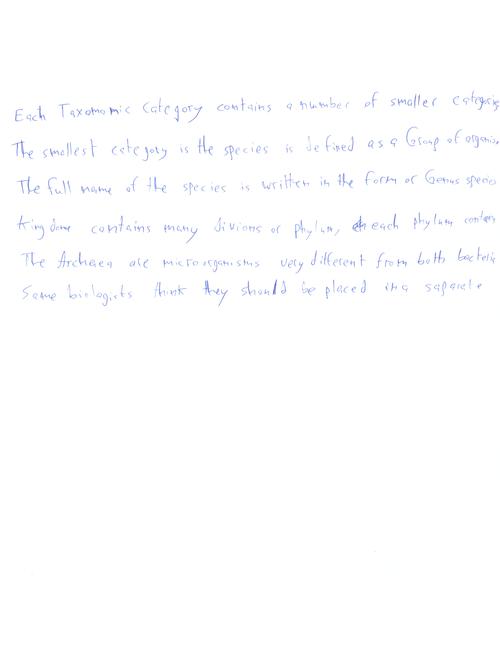 Each Taxonomic Category contains a number of smaller categories
The smallest category is the species is defined as a Group of organis
The full name of the species is written in the form or Genus species
kingdome contains many divions or phylum, each phylum conten
The Archaea are microorganisms very different from both bacteria
Some biologists think they should be placed in a saparate